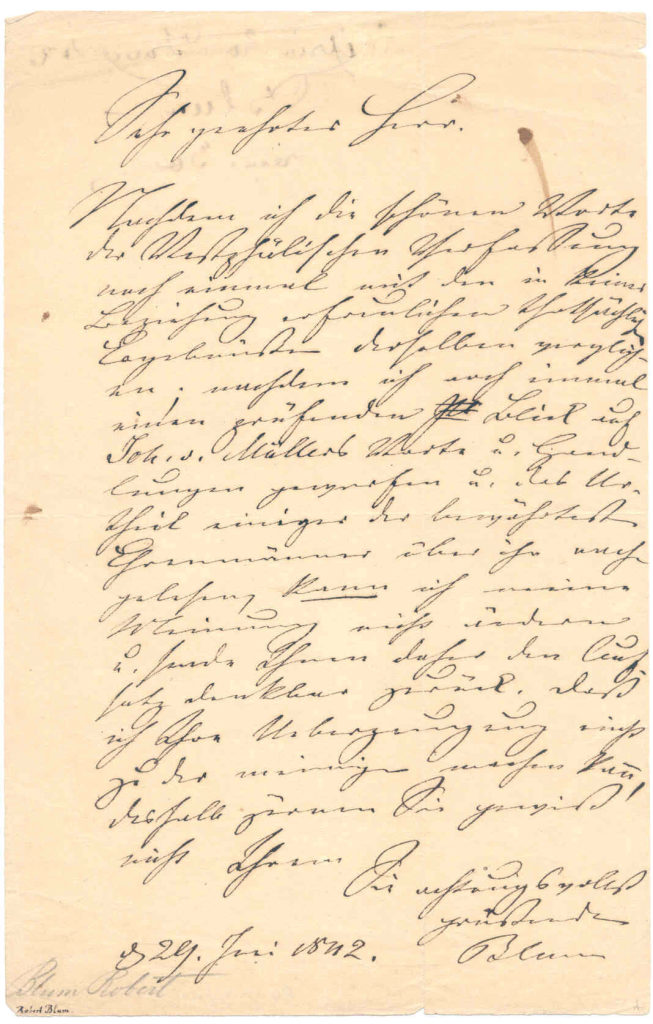 Sehr geehrter Herr.
Nachdem ich die schönen Worte
der Westphälischen Verfassung
noch einmal mit den in keiner
Beziehung erfreulichen thatsächlich
Ergebnissen derselben verglich-
en, nachdem ich noch einmal
einen prüfenden Blick auf
Joh. v. Müllers Worte u. Hand-
lungen geworfen u. das Ur-
theil einiger der bewährtest
Ehrenmänner über ihn nach-
gelesen, kann ich meine
Meinung nicht ändern
u. sende Ihnen daher den Auf-
satz dankbar zurück. Daß
ich Ihre Ueberzeugung nicht
zu der meinigen machen kann,
deshalb zürnen Sie gewiß
nicht Ihrem
Sie achtungsvollst
grüßenden
Blum
d 29. 1842.
Blum Robert
Robert Blum.